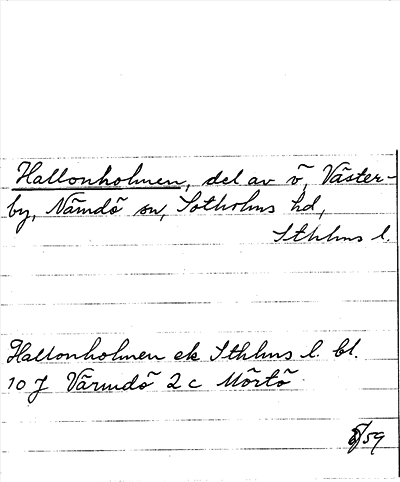 Hallonholmen, del av ö, Väster-
by, Nämdö sn, Sotholms hd,
Sthlms l.
Hallonholmen ek Sthlms l. bl.
10 J Värmdö 2 c Mörtö
/59